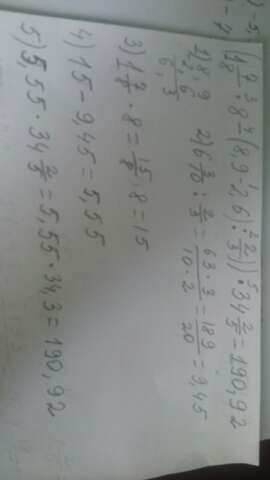 (1 7/8 · 8 - (8,9-2,6) : 2/3)) · 34 2/5 = 190,92
1) 8,9
2,6
6,3
2) 6 3/10 : 2/3 = 63·3/10·2 = 189/20 = 9,45
3) 1 7/8 · 8 = 15/8 · 8 = 15
4) 15 - 9,45 = 5,55
5) 5,55 · 34 2/5 = 5,55 · 34,3 = 190,92